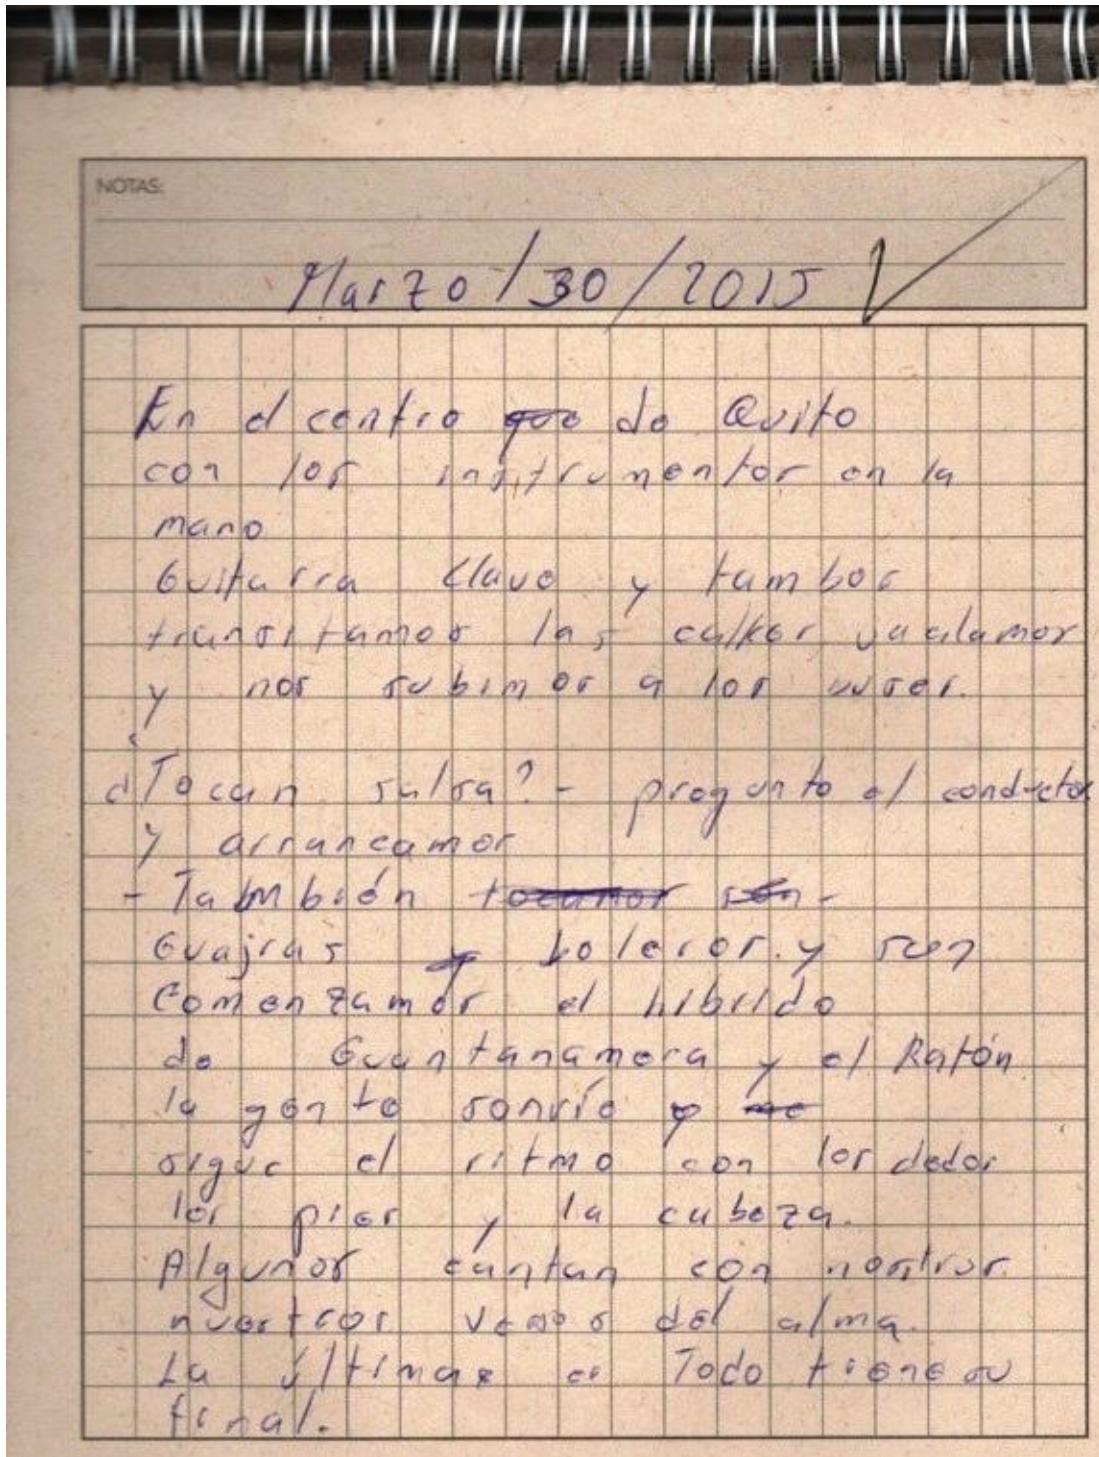 NOTAS:
Marzo/30/2015
En el centro que de Quito
con los instrumentos en la
mano
Guitarra Clave y tambor
transitamos las calles vacilamos
y nos subimos a los buses.
¿Tocan salsa? - pregunto el conductor
y arrancamos
- También tocamos son -
Guajras y boleros. y son
Comenzamos el hibrido
de Guantanamera y el Ratón
la gente sonríe y
sigue el ritmo con los dedos
los pies y la cabeza.
Algunos cantan con nostros
nuestros versos del alma.
La últimas es Todo tiene su
final.